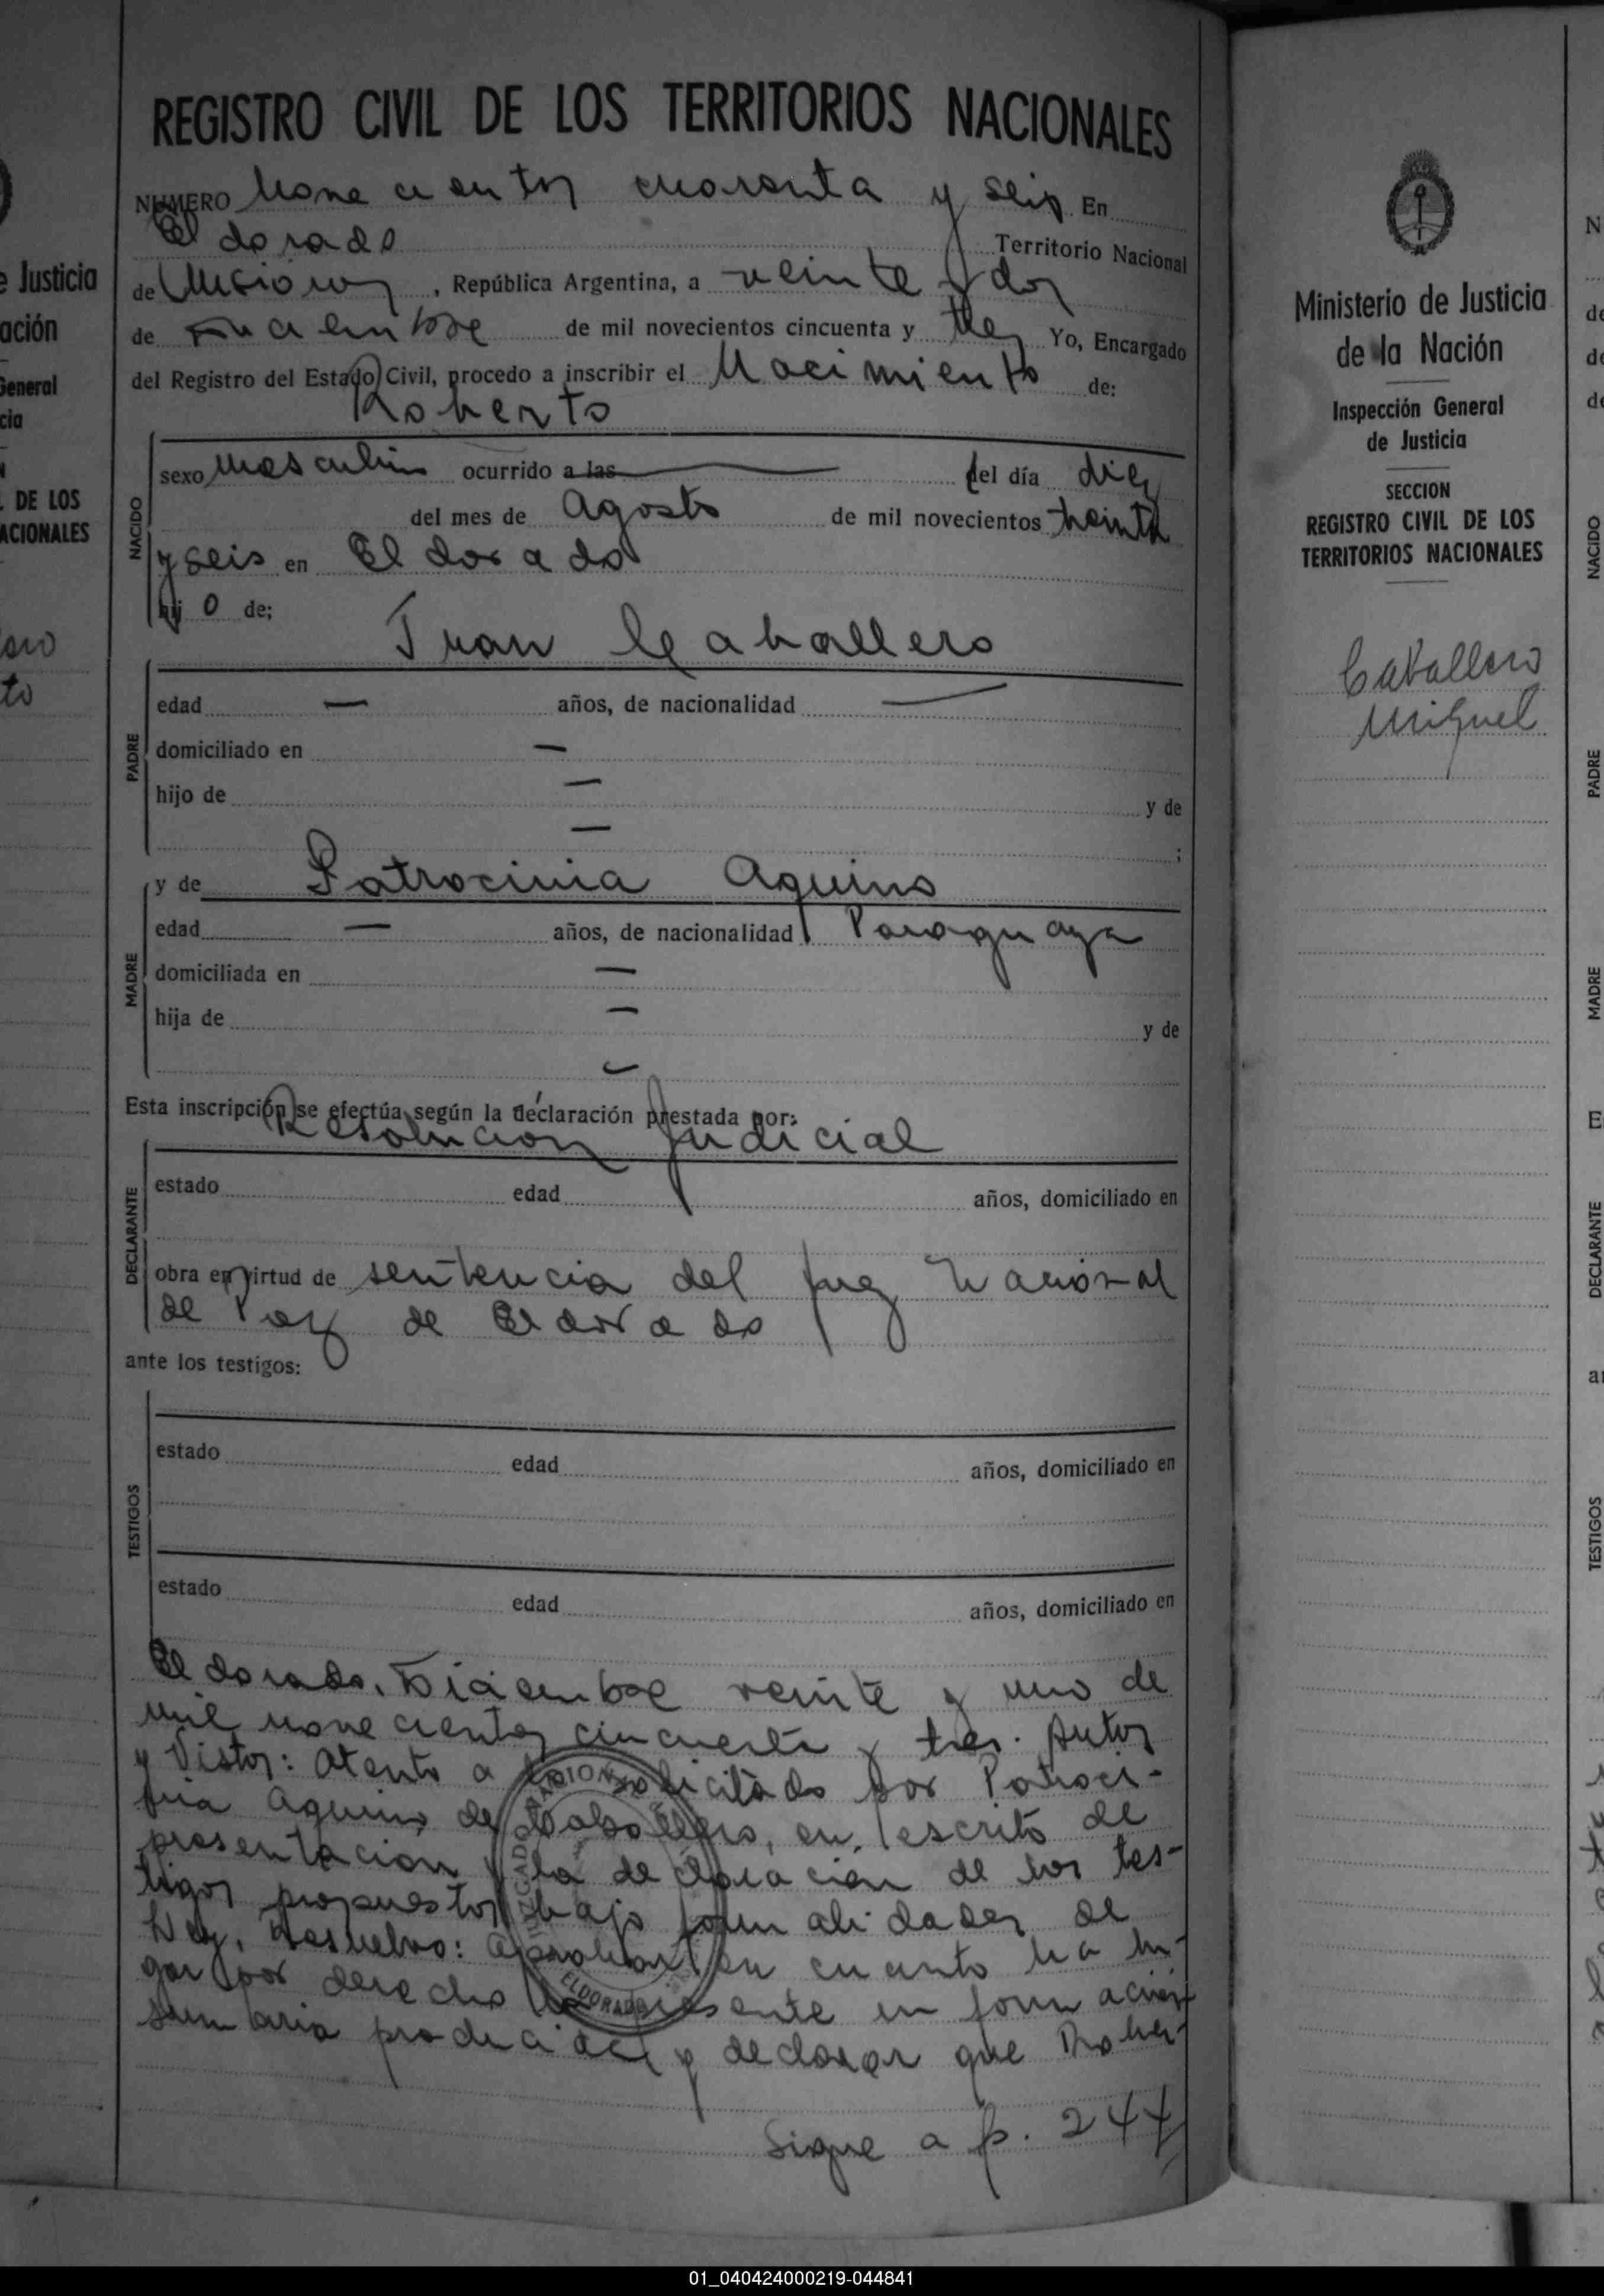 REGISTRO CIVIL DE LOS TERRITORIOS NACIONALES
NUMERO Nove cientos cuarenta y seis En
El dorado Territorio Nacional
de Misiones, República Argentina, a veinte y dos
de Diciembre de mil novecientos cincuenta y tres Yo, Encargado
del Registro del Estado Civil, procedo a inscribir el Nacimiento de:
Roberto
NACIDO
sexo masculino ocurrido a las del día diez
del mes de Agosto de mil novecientos treinta
y seis en El dorado
hijo de;
Juan Caballero
PADRE
edad — años, de nacionalidad —
domiciliado en —
hijo de — y de
— ;
MADRE
y de Patrocinia Aquino
edad — años, de nacionalidad Paraguaya
domiciliada en —
hija de — y de
—
Esta inscripción se efectúa según la declaración prestada por:
Resolucion Judicial
DECLARANTE
estado edad años, domiciliado en
obra en virtud de sentencia del juez Nacional
de Paz de El dorado
ante los testigos:
TESTIGOS
estado edad años, domiciliado en
estado edad años, domiciliado en
El dorado, Diciembre veinte y uno de
mil nove cientos cincuenta y tres. Autos
y Vistos: Atento a lo solicitado por Patroci-
nia Aquino de Caballero, en escrito de
presentacion y la declaracion de los tes-
tigos propuestos bajo formalidades de
Ley, Resuelvo: Aprobar en cuanto ha lu-
gar por derecho la presente informacion
sumaria producida y declarar que Rober-
Sigue a f. 244
JUZGADO NACIONAL
ELDORADO
e Justicia
ación
General
cia
DE LOS
ACIONALES
ero
to
Ministerio de Justicia
de la Nación
Inspección General
de Justicia
SECCION
REGISTRO CIVIL DE LOS
TERRITORIOS NACIONALES
Caballero
Miguel
N
de
de
de
NACIDO
PADRE
MADRE
E
DECLARANTE
an
TESTIGOS
01_040424000219-044841